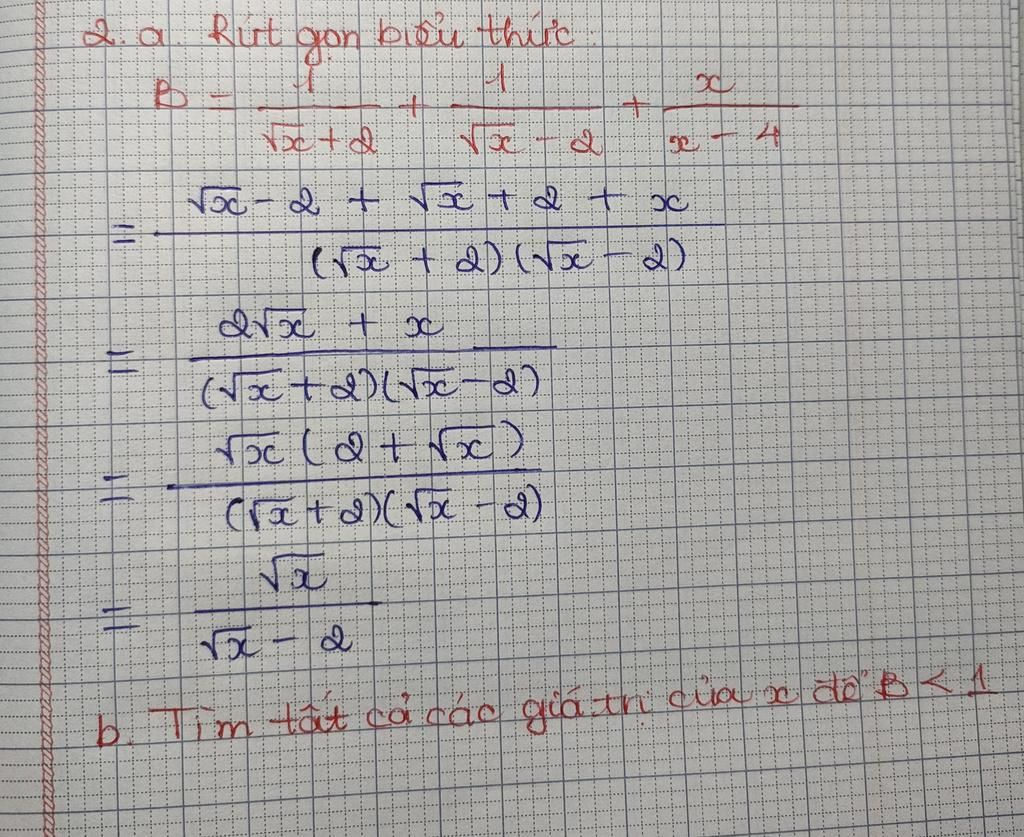 2. a. Rút gọn biểu thức:
B = 1/(√x + 2) + 1/(√x - 2) + x/(x - 4)
= (√x - 2 + √x + 2 + x)/((√x + 2)(√x - 2))
= (2√x + x)/((√x + 2)(√x - 2))
= (√x(2 + √x))/((√x + 2)(√x - 2))
= √x/(√x - 2)
b. Tìm tất cả các giá trị của x để B < 1